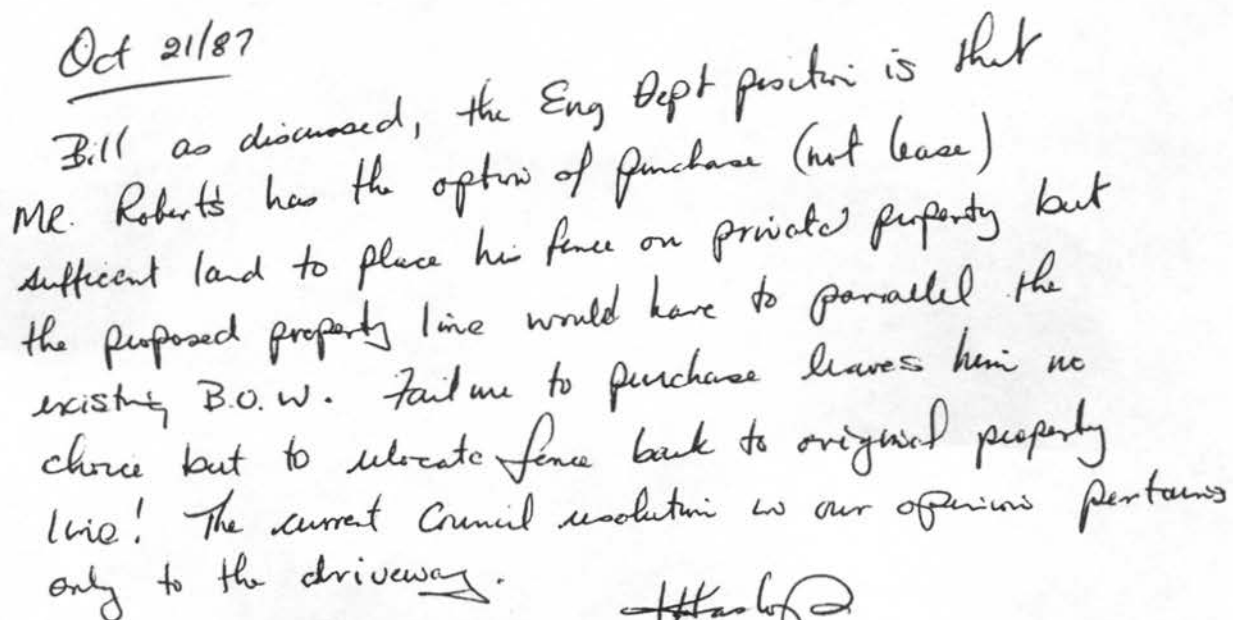 Oct 21/87
Bill as discussed, the Eng Dept position is that
MR. Roberts has the option of purchase (not lease)
sufficient land to place his fence on private property but
the proposed property line would have to parallel the
existing B.O.W. Failure to purchase leaves him no
choice but to relocate fence back to original property
line! The current Council resolution in our opinion pertains
only to the driveway.